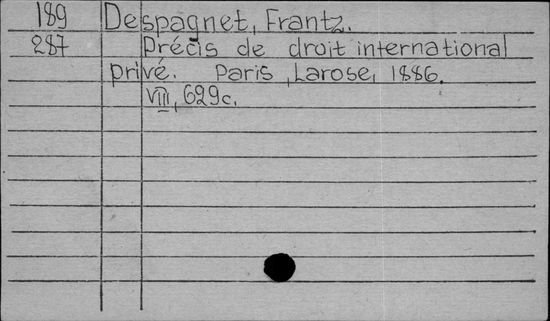 189 Despagnet, Frantz.
287 Précis de droit international
privé. Paris, Larose, 1886.
VIII, 629c.